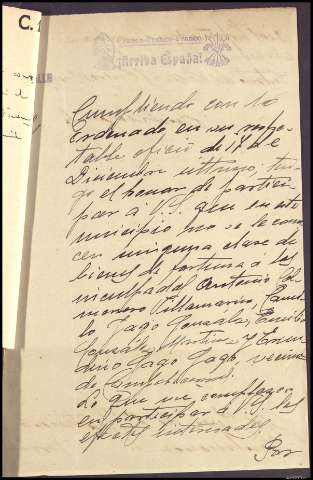 C. 1
Franco-Franco-Franco
¡Arriba España!
Cumpliendo con lo
ordenado en su respe-
table oficio de 17 de
Diciembre ultimo, ten-
go el honor de partici-
par á V.S. que en este
municipio no se le cono-
cen ninguna clase de
bienes de fortuna a los
inculpados Antonio
Villamarin,
lo Gago González, Emilio
González Martín y
Gago Gago, vecinos
de
Lo que me complazco
en participar á V.S. a los
efectos interesados.
Por